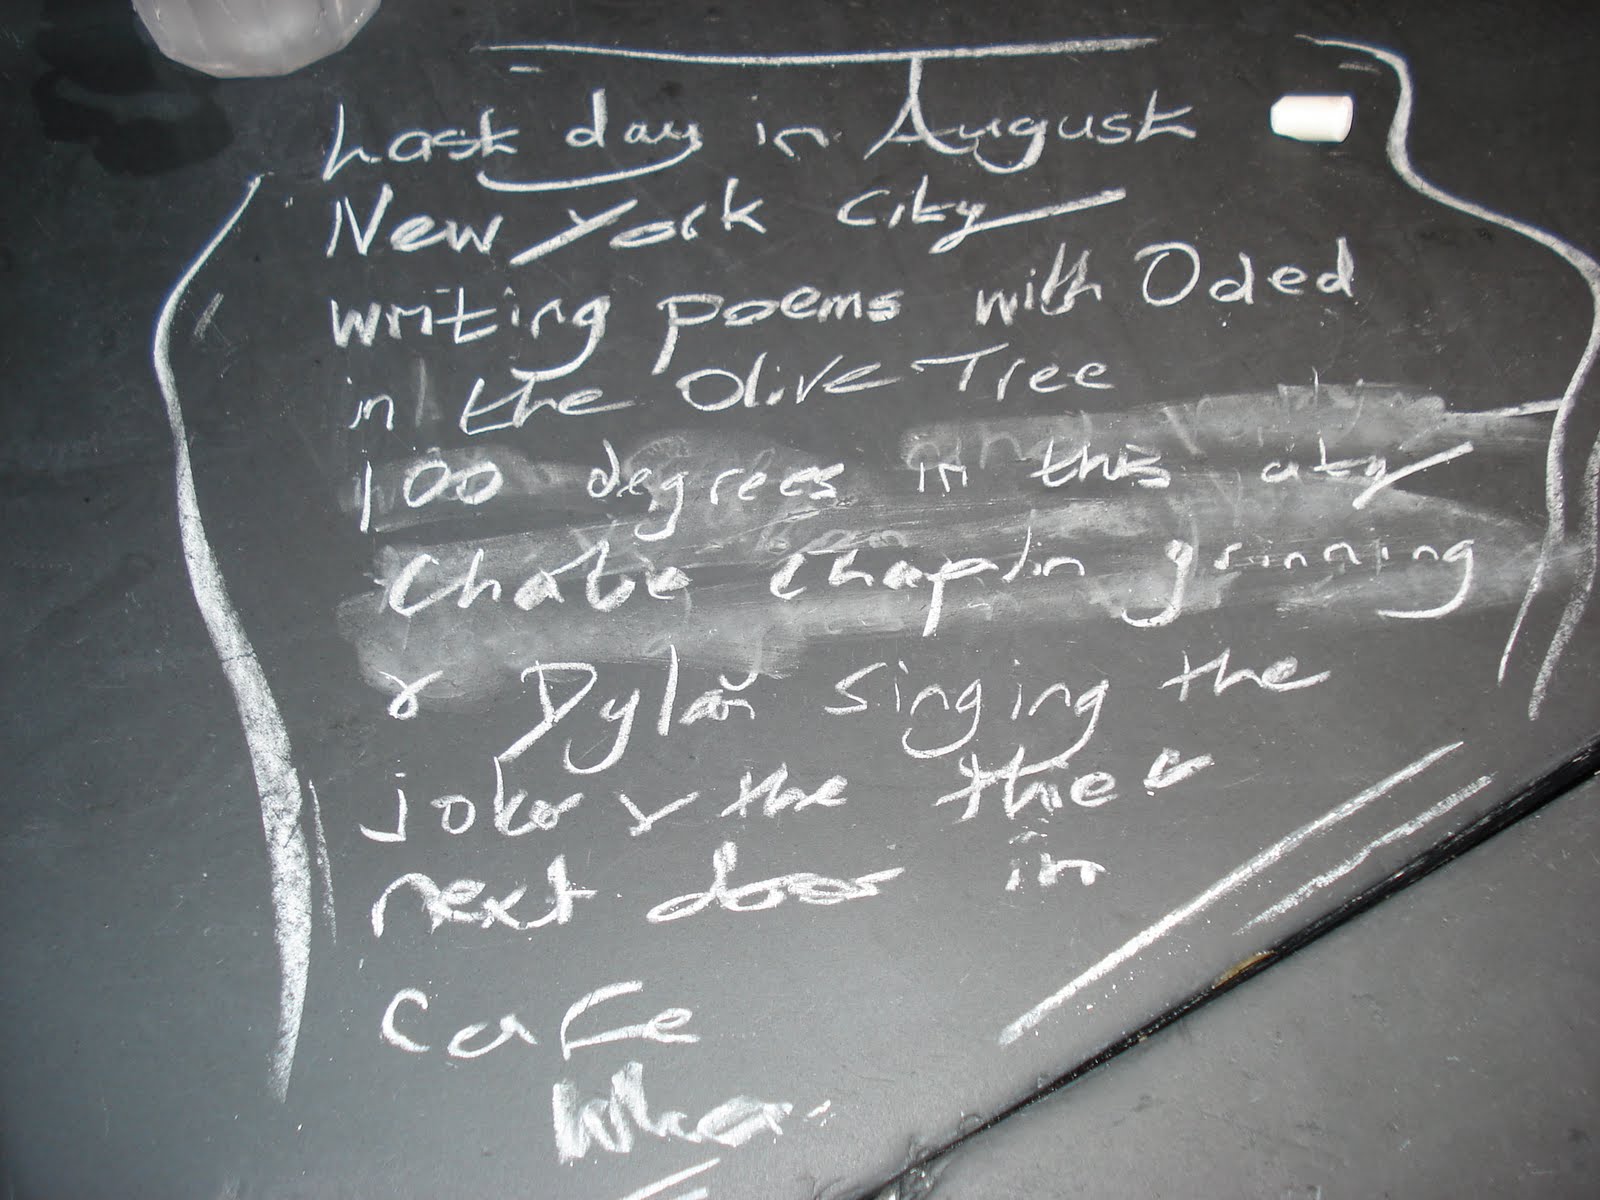 Last day in August
New York City
writing poems with Oded
in the Olive Tree
100 degrees in this city
Charlie Chaplin grinning
& Dylan singing the
joker & the thief
next door in
Cafe
Wha